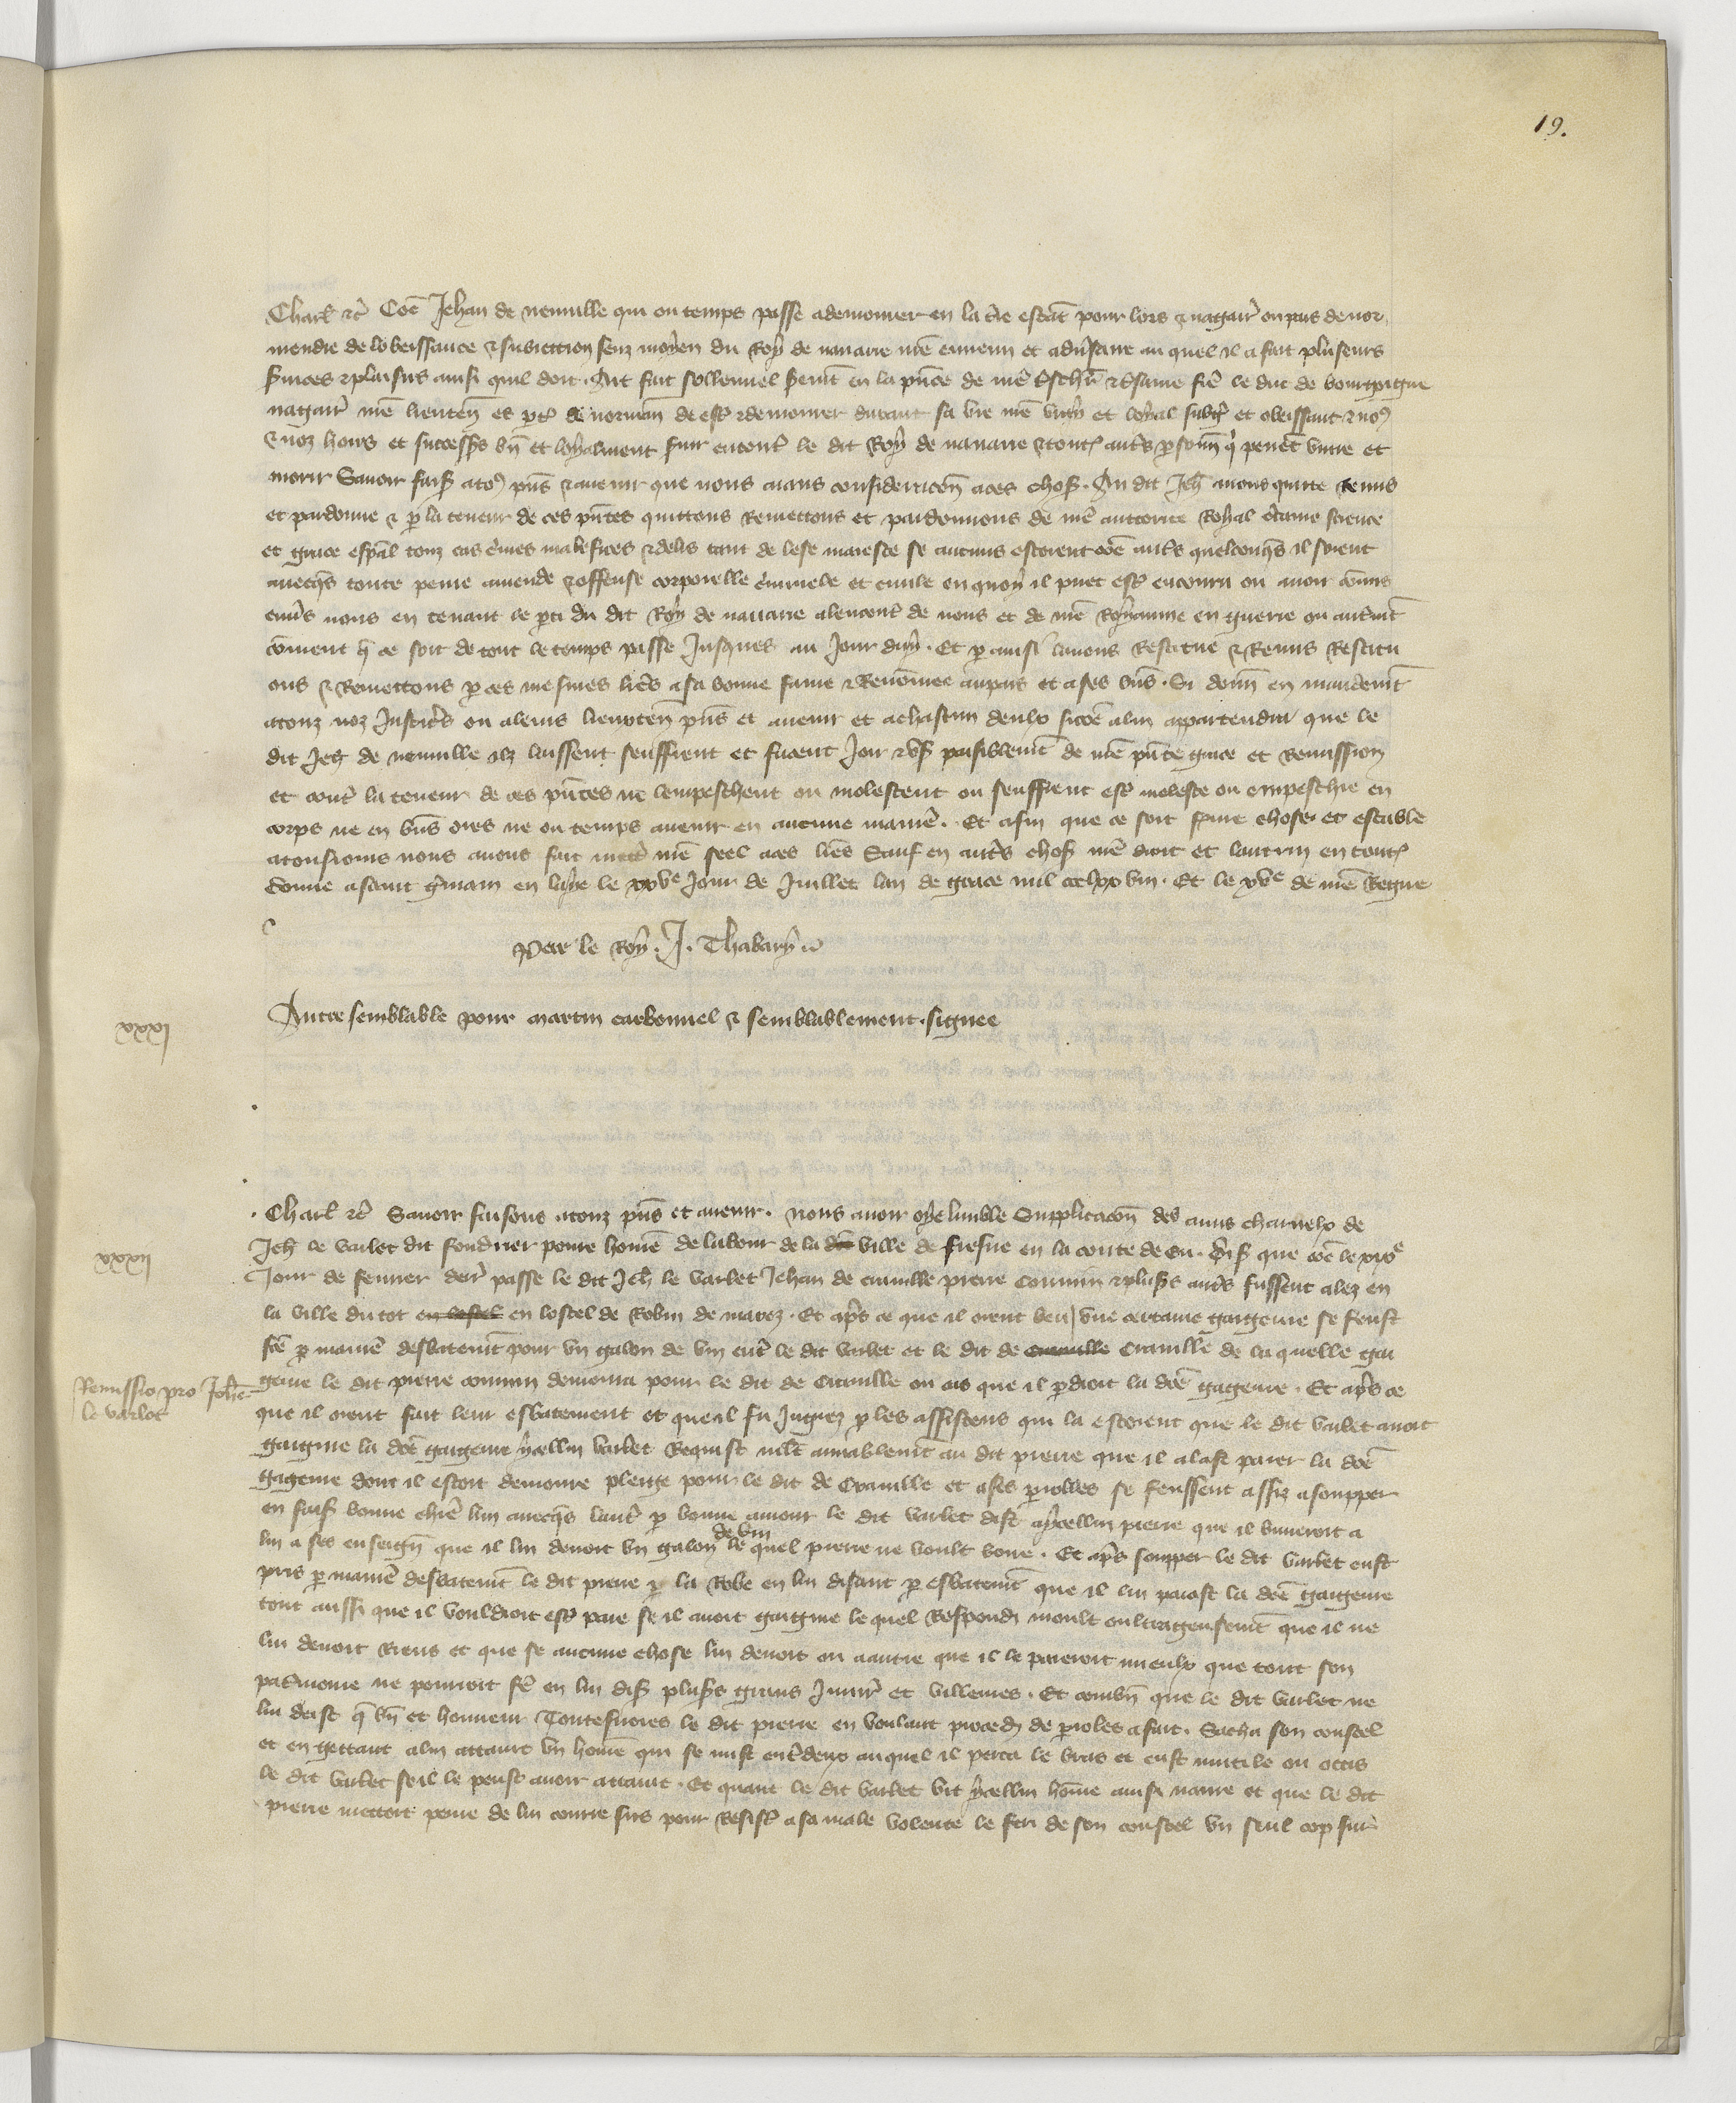 19.
Charl etc Coe Jehan de neuuille qui ou temps passe a demoure en la tre estat pour lors & nagair ou pais de nor
mendie de lobeissance & subiection senz moyen du Roy de nauarre nre ennemi et aduersaire au quel il a fait pluseurs
seruices & plaisirs ainsi quil doit. Ait fait sollennel serment en la pnce de nre treschier & tresame frere le duc de bourgoigne
nagair nre lieuten es pties de normen de estre & demourer durant sa vie nre vray et loyal subget et obeissant & nous
& noz hoirs et successeurs bn et loyalment seruir encontre le dit Roy de nauarre & toutes autres psonn q peuent viure et
morir Sauoir fais a tous pns & auenir que nous aians consideracon a ces choses. Au dit Jeh auons quitte remis
et pardonne & p la teneur de ces pntes quittons Remettons et pardonnons de nre auctorite Royal certaine science
et grace espal touz cas crimes malefices & deliz tant de lese maieste se aucuns estoient coe autres quelconqs il soient
auecqs toute peine amende & offense corporelle criminele et ciuile en quoy il puet estre encouru ou auoir commis
enuers nous en tenant le pti du dit Roy de nauarre alencontre de nous et de nre Royaume en guerre ou autrement
coment q ce soit de tout le temps passe Jusques au Jour duy. Et p ainsi lauons Restitue & Remis Restitu
ons & Remettons p ces mesmes lres a sa bonne fame & Renomee au pais et a ses biens. Si donn en mandement
a touz noz Justiciers ou a leurs lieuxten pns et auenir et a chascun deulx sicoe a lui appartendra que le
dit Jeh de neuuille ilz laissent seuffrent et facent Joir & user paisiblemt de nre pnte grace et Remission
et contre la teneur de ces pntes ne lempeschent ou molestent ou seuffrent estre moleste ou empeschie en
corps ne en biens ores ne ou temps auenir en aucune maniere. Et afin que ce soit ferme chose et estable
a tousiours nous auons fait mettre nre seel a ces lres Sauf en autres choses nre droit et lautrui en toutes
donne a saint germain en laye le xxve Jour de Juillet lan de grace mil ccclxx viii. Et le xve de nre Regne
Par le Roy. J. Thabary
xxxi
Autre semblable pour martin carbonnel & semblablement. signee
xxxii
. Charl etc Sauoir faisons a touz pns et auenir. Nous auoir oye lumble Supplicacon des amis charnelx de
Jeh le varlet dit fondrier poure home de labour de la ville de fresne en la conte de Eu. Dis que coe le
Jour de feurier der passe le dit Jeh le varlet Jehan de crauille pierre commin & pluss autres fussent alez en
la ville du tot en lostel en lostel de Robin de marez. Et apres ce que il orent beu une certaine gaigeure se feust
fce p maniere desbatement pour un galon de vin entre le dit varlet et le dit de crauille Crauille de la quelle gai
geure le dit pierre commin demoura pour le dit de Crauille ou cas que il pdroit la dce gageure. Et apres ce
Remissio pro Johe
le varlet
que il orent fait leur esbatement et que il fu Jugiez p les assistens qui la estoient que le dit varlet auoit
gaigne la dce gaigeure ycellui varlet Requist mlt amiablement au dit pierre que il alast paier la dce
gageure dont il estoit demoure pleige pour le dit de Crauille et a ses parolles se feussent assiz a soupper
en fais bonne chiere lun auecqs lautre p bonne amour le dit varlet dist a ycellui pierre que il buueroit a
lui a ses enseign que il lui deuoit un galon de vin le quel pierre ne voult boire. Et apres soupper le dit varlet eust
pris p maniere desbatement le dit pierre p la Robe en lui disant p esbatement que il lui paiast la dce gaigeure
tout aussi que il vouldroit estre paie se il auoit gaignie le quel Respondi moult oultrageusement que il ne
lui deuoit Riens et que se aucune chose lui deuoit ou a autre que il le paieroit mieulx que tout son
patrimoine ne pourroit fere en lui dis pluss grans Jniures et villenies. Et combn que le dit varlet ne
lui deist q bn et honneur Toutesuoies le dit pierre en voulant proceder de paroles a fait. Sacha son coustel
et en gettant a lui attaint un home qui se mist entredeux auquel il perca le bras et eust mutile ou occis
le dit varlet se il le peust auoir attaint. Et quant le dit varlet vit ycellui home ainsi naure et que le dit
pierre mettoit peine de lui courre sus pour Resister a sa male volente le feri de son coustel un seul cop sur